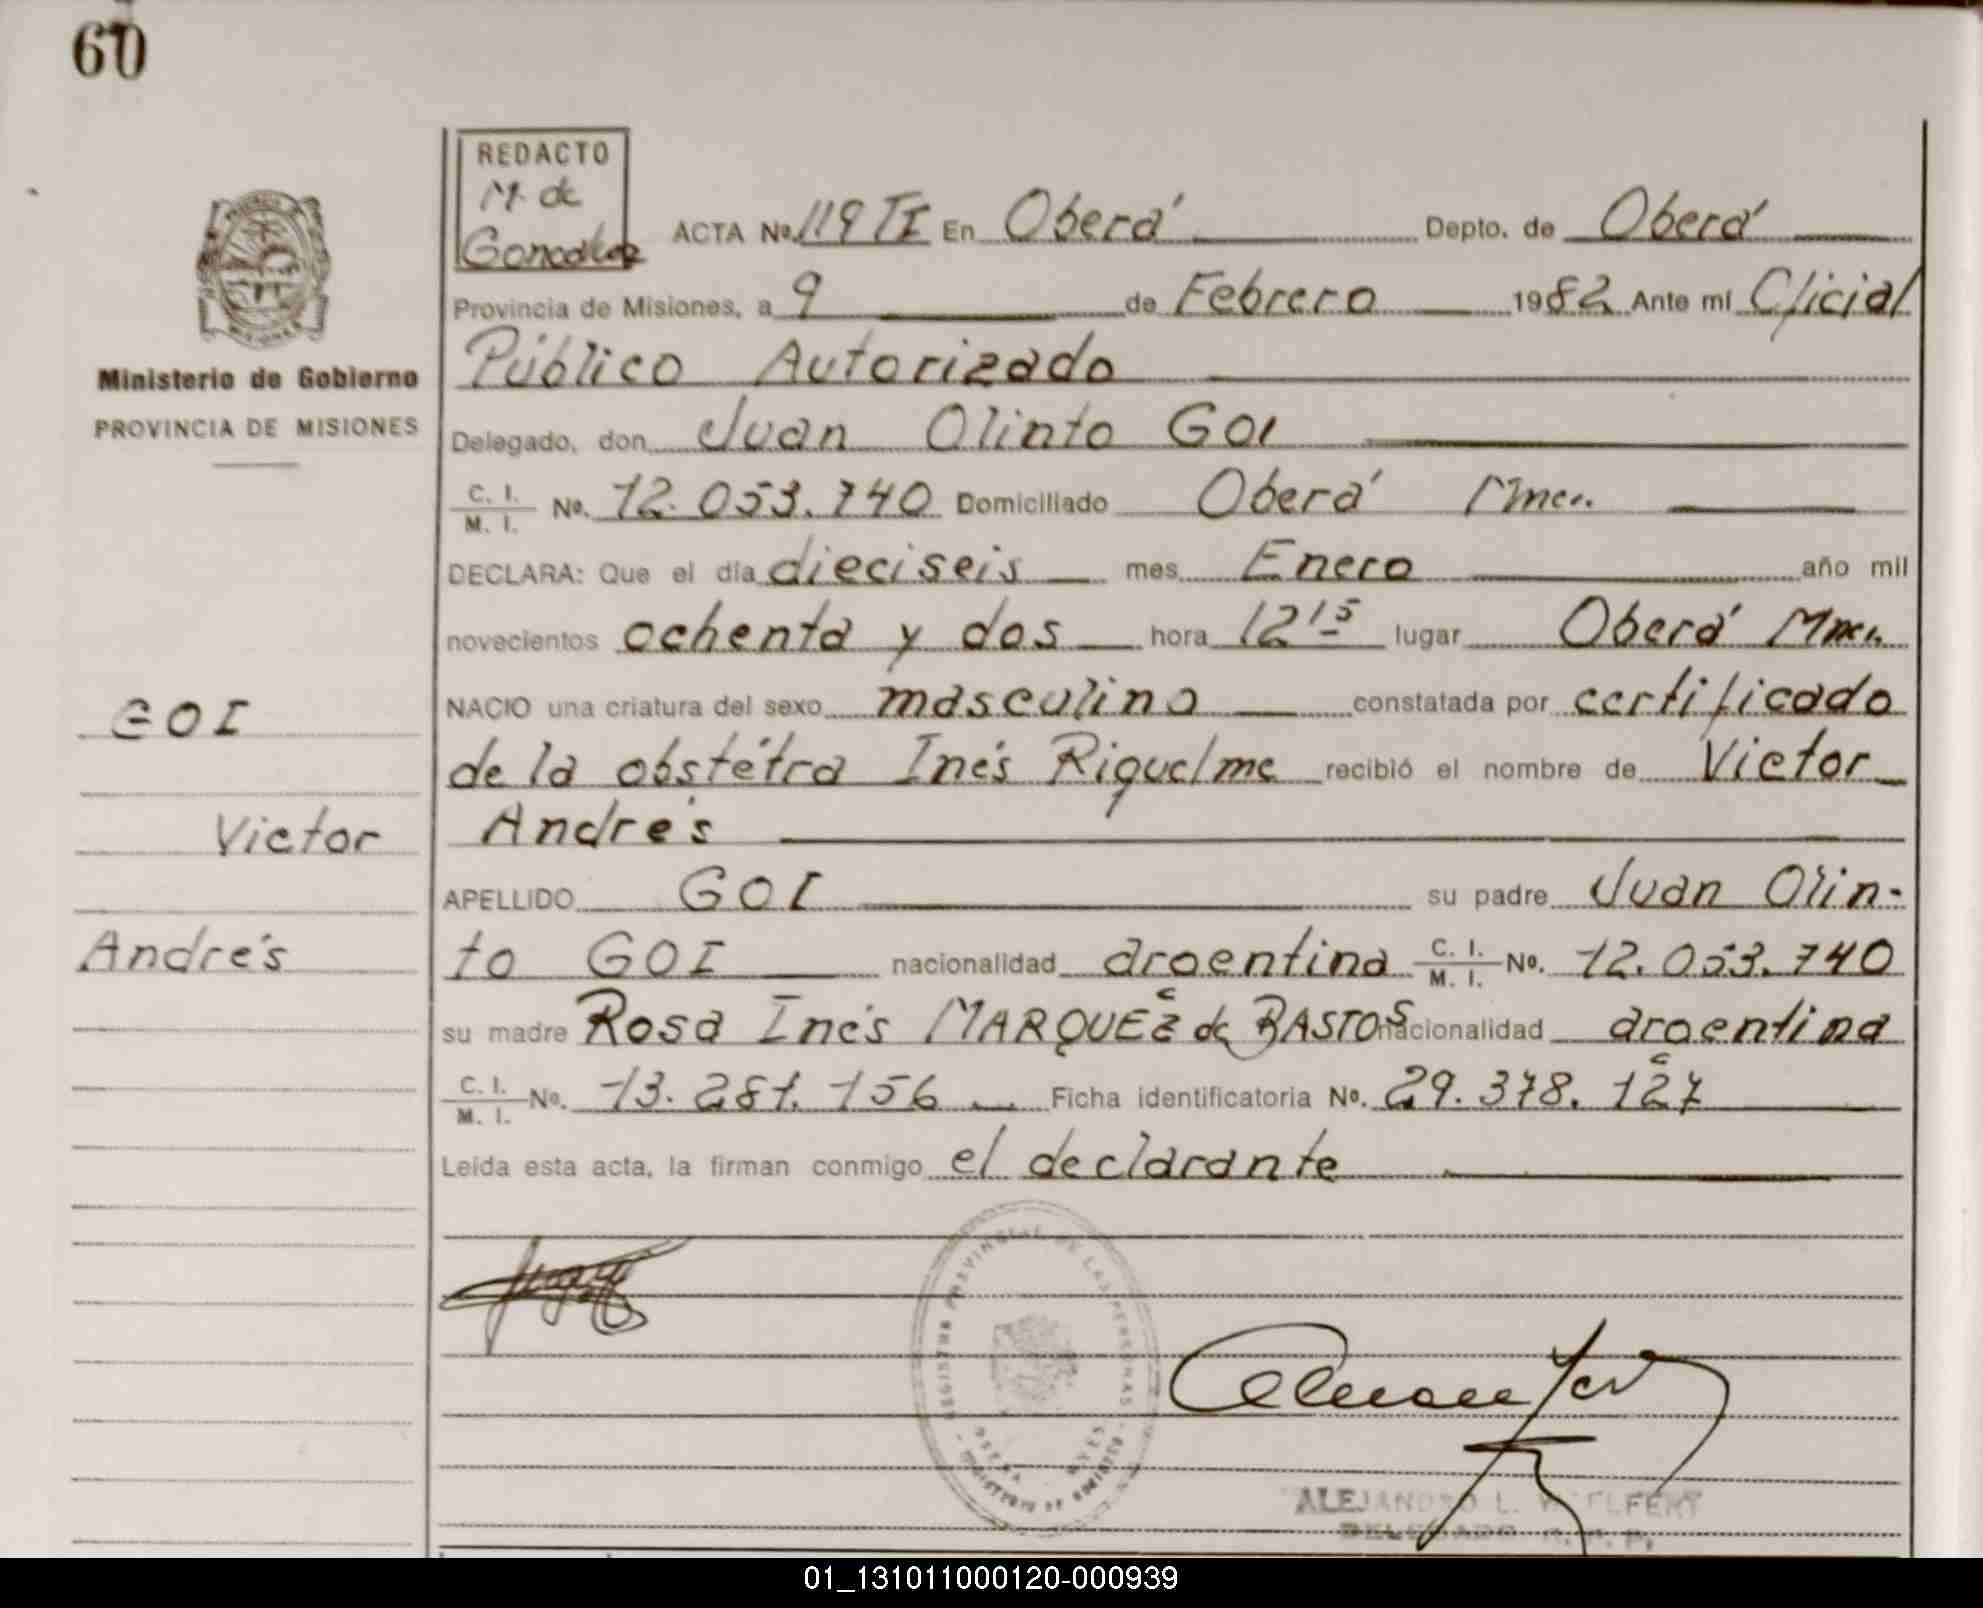 60
REDACTO
M. de
Gonzalez
ACTA Nº. 119 TI En Oberá Depto. de Oberá
Provincia de Misiones, a 9 de Febrero 1982 Ante mí Oficial
Público Autorizado
Ministerio de Gobierno
PROVINCIA DE MISIONES
Delegado, don Juan Olinto GOI
C. I.
M. I. Nº. 12.053.740 Domiciliado Oberá Mnes.
DECLARA: Que el día dieciseis mes Enero año mil
novecientos ochenta y dos hora 12 15 lugar Oberá Mnes.
GOI
NACIO una criatura del sexo masculino constatada por certificado
de la obstétra Inés Riquelme recibió el nombre de Victor
Victor
Andrés
APELLIDO GOI su padre Juan Olin-
Andrés
to GOI nacionalidad argentina C. I.
M. I. Nº. 12.053.740
su madre Rosa Inés MARQUEZ de BASTOS nacionalidad argentina
C. I.
M. I. Nº. 13.281.156 Ficha identificatoria Nº. 29.378.127
Leída esta acta, la firman conmigo el declarante
REGISTRO PROVINCIAL DE LAS PERSONAS
OBERA
MINISTERIO DE GOBIERNO
ALEJANDRO L.
DELEGADO R. P. P.
01_131011000120-000939